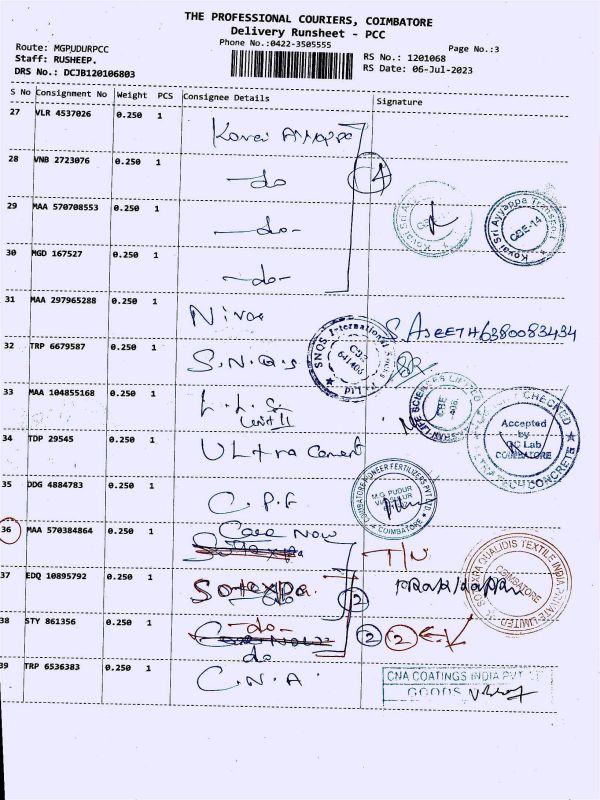 THE PROFESSIONAL COURIERS, COIMBATORE
Delivery Runsheet - PCC
Phone No.:0422-3505555
Page No.:3
Route: MGPUDURPCC
Staff: RUSHEEP.
DRS No.: DCJB120106803
RS No.: 1201068
RS Date: 06-Jul-2023
S No Consignment No Weight PCS Consignee Details Signature
27 VLR 4537026 0.250 1 Kovai Ayyappa
28 VNB 2723076 0.250 1 -do 4
29 MAA 570708553 0.250 1 -do-
Kovai Sri Ayyappa Transport CBE-14
30 MGD 167527 0.250 1 -do-
31 MAA 297965288 0.250 1 Nivas S.AJEETH/6380083434
32 TRP 6679587 0.250 1 S.N.Q.S
SNQS International CBE 641406
33 MAA 104855168 0.250 1 L.L.S. Unit II
LIFE SCIENCES CBE
CHECKED Accepted by QC Lab COIMBATORE CONCRETE
34 TDP 29545 0.250 1 Ultra Cement
35 DDG 4884783 0.250 1 C.P.F
COIMBATORE PIONEER FERTILIZERS PVT LTD M.G. PUDUR COIMBATORE
36 MAA 570384864 0.250 1 Case Now T/N
37 EDQ 10895792 0.250 1 Sotexpa. 2
SOTEXPA QUALIDIS TEXTILE INDIA PRIVATE LIMITED COIMBATORE
38 STY 861356 0.250 1 -do- 2 2
do
39 TRP 6536383 0.250 1 C.N.A.
CNA COATINGS INDIA PVT LTD
GOODS